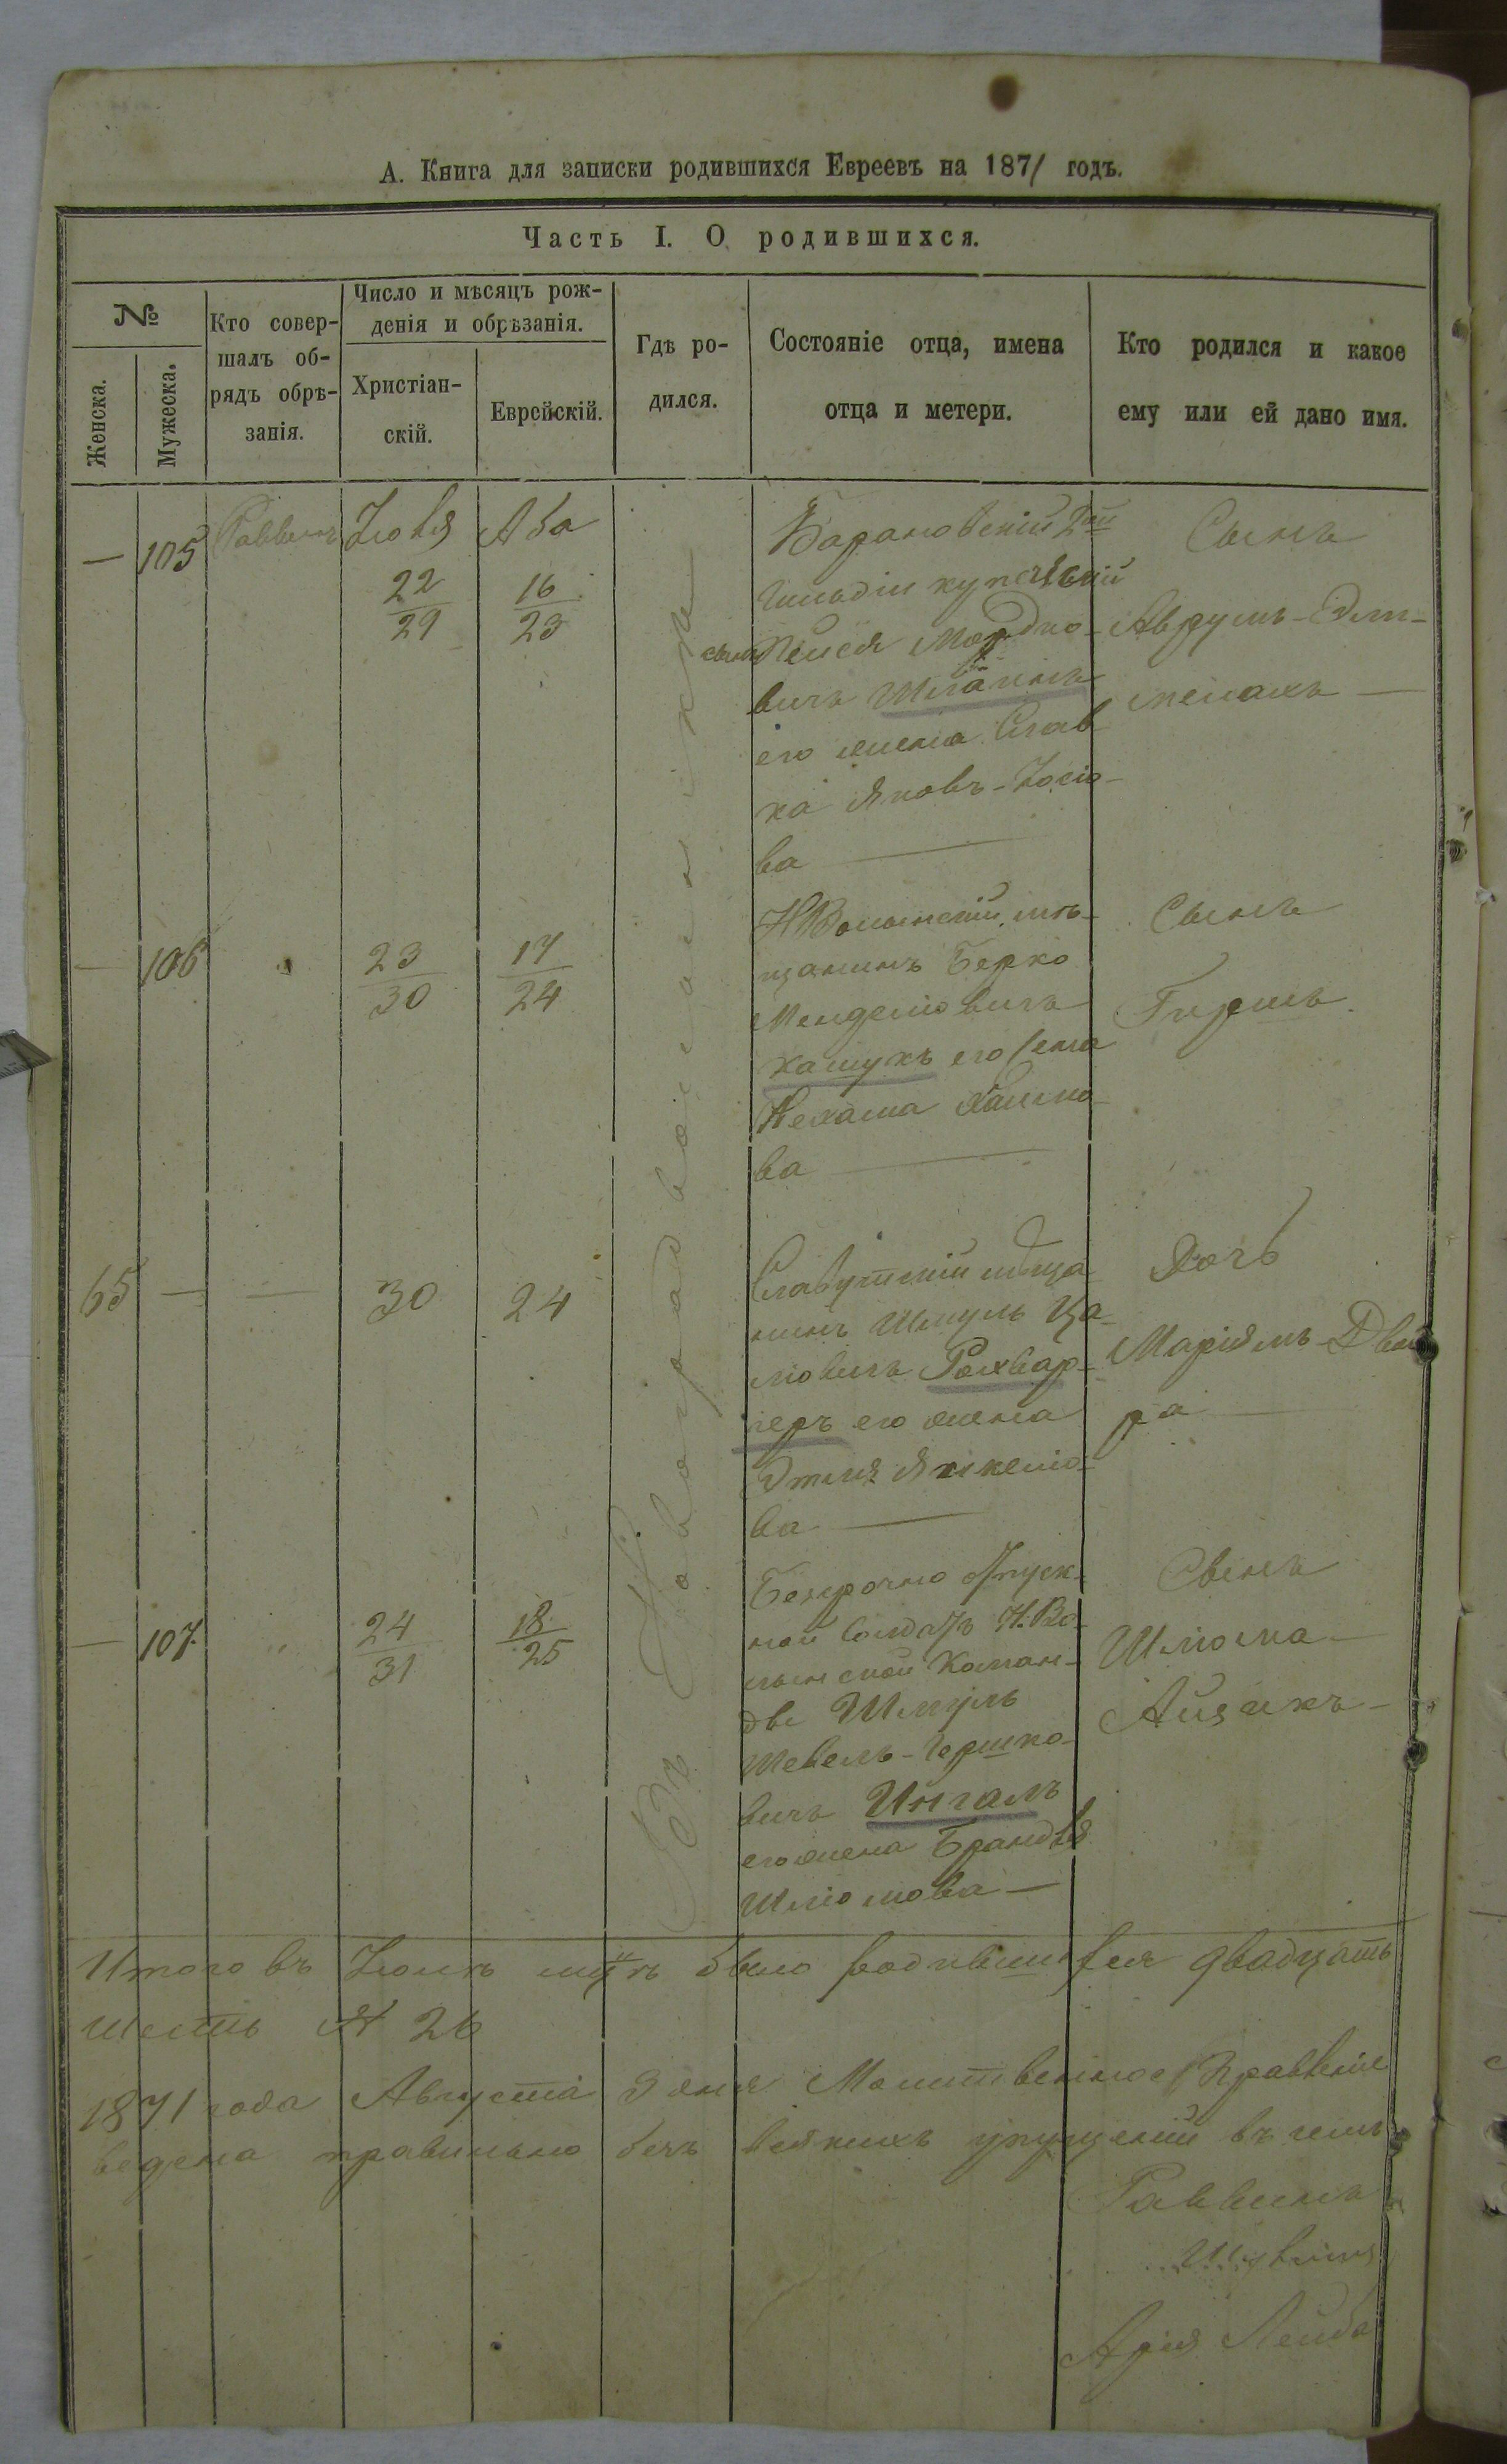 А. Книга для записки родившихся Евреевъ на 1871 годъ.
Часть I. О родившихся.
№
Женска.
Мужеска.
Кто совер-
шалъ об-
рядъ обрѣ-
занія.
Число и мѣсяцъ рож-
денія и обрѣзанія.
Христіан-
скій.
Еврейскій.
Гдѣ ро-
дился.
Состояніе отца, имена
отца и метери.
Кто родился и какое
ему или ей дано имя.
— 105
Раввинъ
Іюля
22
29
Аба
16
23
Барановскій 2ой
гильдіи купеческій
сынъ Пейся Мордко-
вичъ
его жена Слав
ка Яновъ-Іосіо-
ва —
Сынъ
Аврумъ-Эли-
мелахъ —
— 106
23
30
17
24
НВолынскій мѣ-
щанинъ Берко
Менделіовичъ
Кашукъ его жена
Нехама Хаимо-
ва —
Сынъ
Гиршъ
65 — —
30
24
Славутскій мѣща
нинъ Шмуль Ца-
ліовичъ Рохвар-
геръ его жена
Этля
ва —
Дочь
Маріямъ-Двой
ра —
— 107.
24
31
18
25
Безсрочно отпуск-
ной солдатъ Н.Во-
лынской Коман-
ды Шмуль
Шевель-Гершко-
вичъ Ингалъ
его жена Брандля
Шліомова —
Сынъ
Шліома —
Айзикъ —
Въ Новоградволынскѣ
Итого въ Іюлѣ мцѣ было родившихся двадцать
шесть № 26
1871 года Августа 3 дня Молитвенное Правленіе
ведена правильно безъ всякихъ упущеній въ чемъ
Раввинъ
Арія Лейба